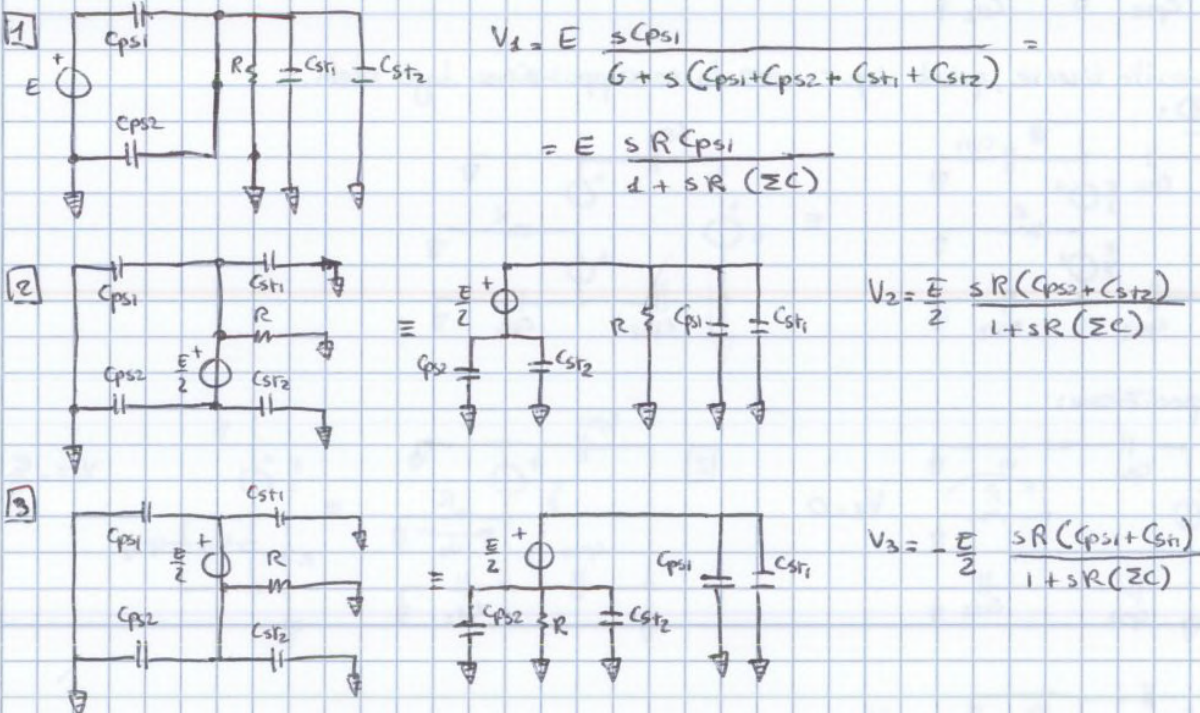 1
Cps1
E
+
Cps2
R
Cst1
Cst2
V1 = E sCps1 / G + s(Cps1+Cps2+Cst1+Cst2) =
= E sRCps1 / 1 + sR (ΣC)
2
Cps1
Cst1
R
Cps2
E/2
+
Cst2
≡
E/2
+
Cps2
Cst2
R
Cps1
Cst1
V2 = E/2 sR(Cps2+Cst2) / 1+sR(ΣC)
3
Cps1
Cst1
E/2
+
R
Cps2
Cst2
≡
E/2
+
Cps2
R
Cst2
Cps1
Cst1
V3 = - E/2 sR(Cps1+Cst1) / 1+sR(ΣC)